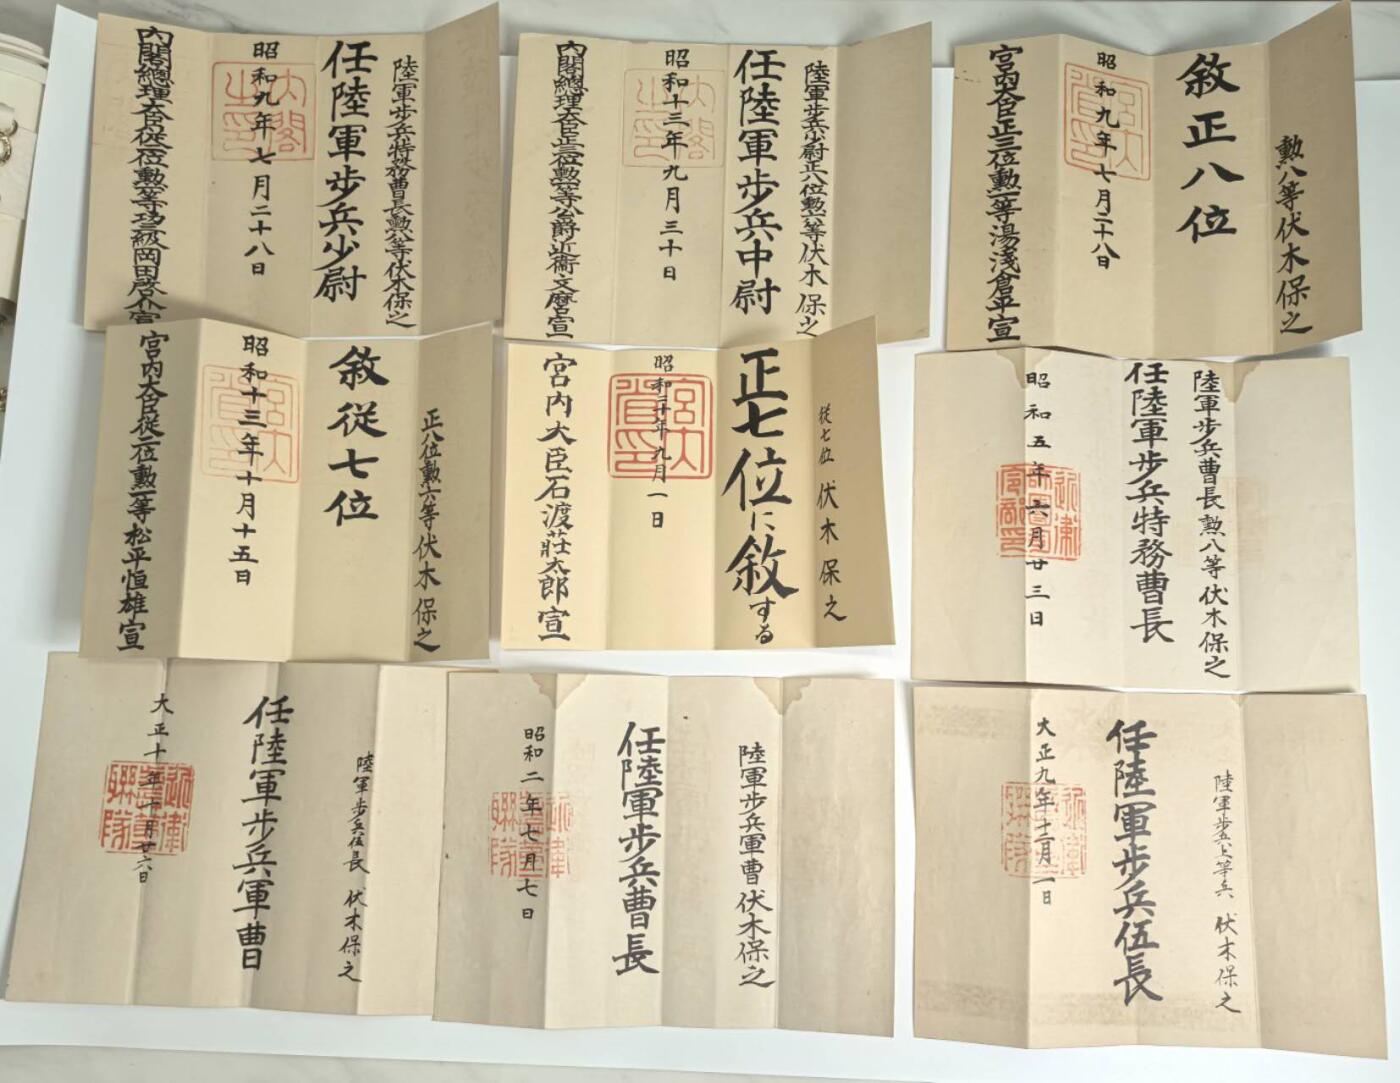 陸軍歩兵特務曹長勲八等伏木保之
任陸軍歩兵少尉
昭和九年七月二十八日
内閣之印
内閣總理大臣從二位勲一等功三級岡田啓介宣
陸軍歩兵少尉正八位勲六等伏木保之
任陸軍歩兵中尉
昭和十三年九月三十日
内閣之印
内閣總理大臣從二位勲一等公爵近衞文麿宣
勲八等伏木保之
敘正八位
昭和九年七月二十八日
宮内大臣正三位勲一等湯淺倉平宣
正八位勲六等伏木保之
敘從七位
昭和十三年十月十五日
宮内大臣從二位勲一等松平恒雄宣
從七位伏木保之
正七位に敘する
昭和二十年九月一日
宮内大臣石渡莊太郎宣
陸軍歩兵曹長勲八等伏木保之
任陸軍歩兵特務曹長
昭和五年六月廿三日
陸軍歩兵伍長 伏木保之
任陸軍歩兵軍曹
大正十年十月廿六日
陸軍歩兵軍曹伏木保之
任陸軍歩兵曹長
昭和二年七月七日
陸軍歩兵上等兵 伏木保之
任陸軍歩兵伍長
大正九年十二月一日